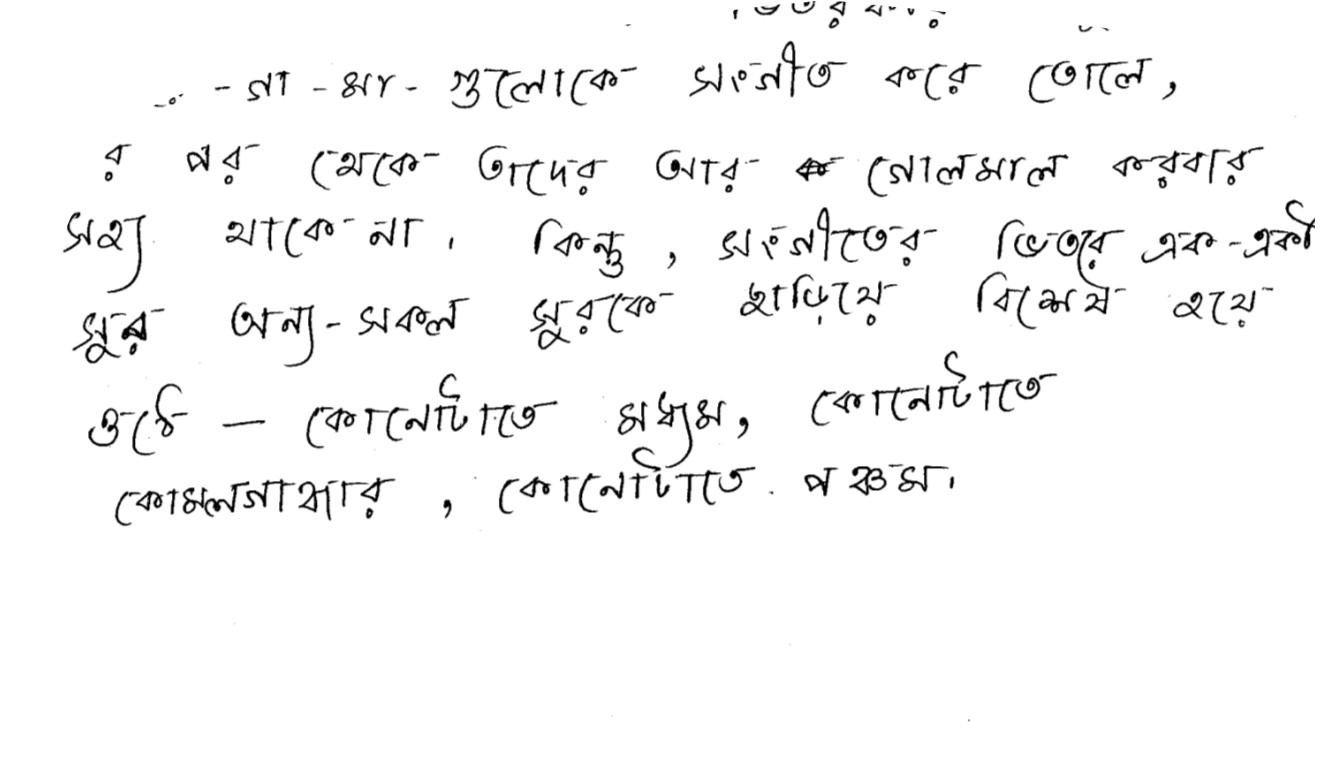 -গা-মা-গুলোকে সংগীত করে তোলে,
র পর থেকে তাদের আর গোলমাল করবার
সহ্য থাকে না। কিন্তু, সংগীতের ভিতরে এক-একটী
সুর অন্য-সকল সুরকে ছাড়িয়ে বিশেষ হয়ে
ওঠে — কোনোটাতে মধ্যম, কোনোটাতে
কোমলগান্ধার, কোনোটাতে পঞ্চম।